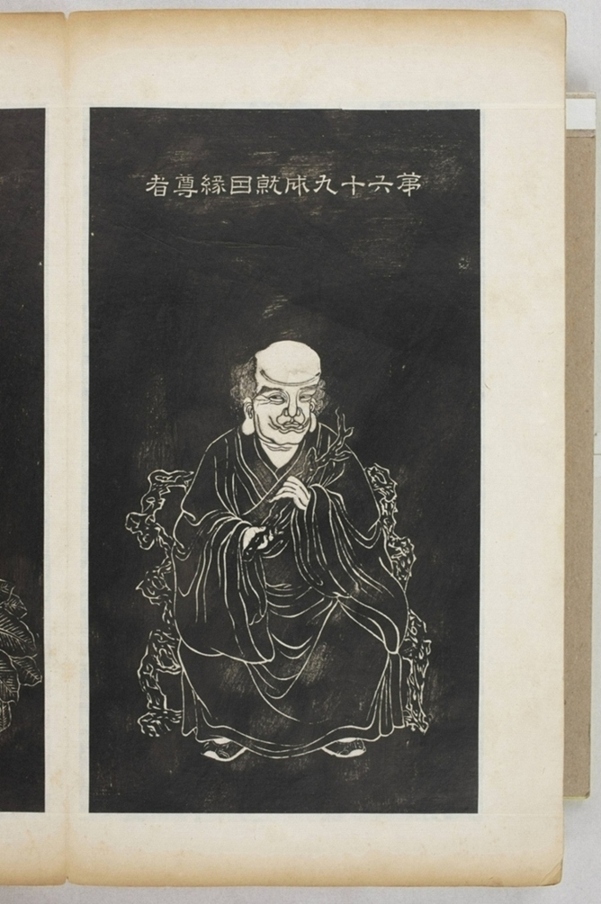 第六十九成就因緣尊者